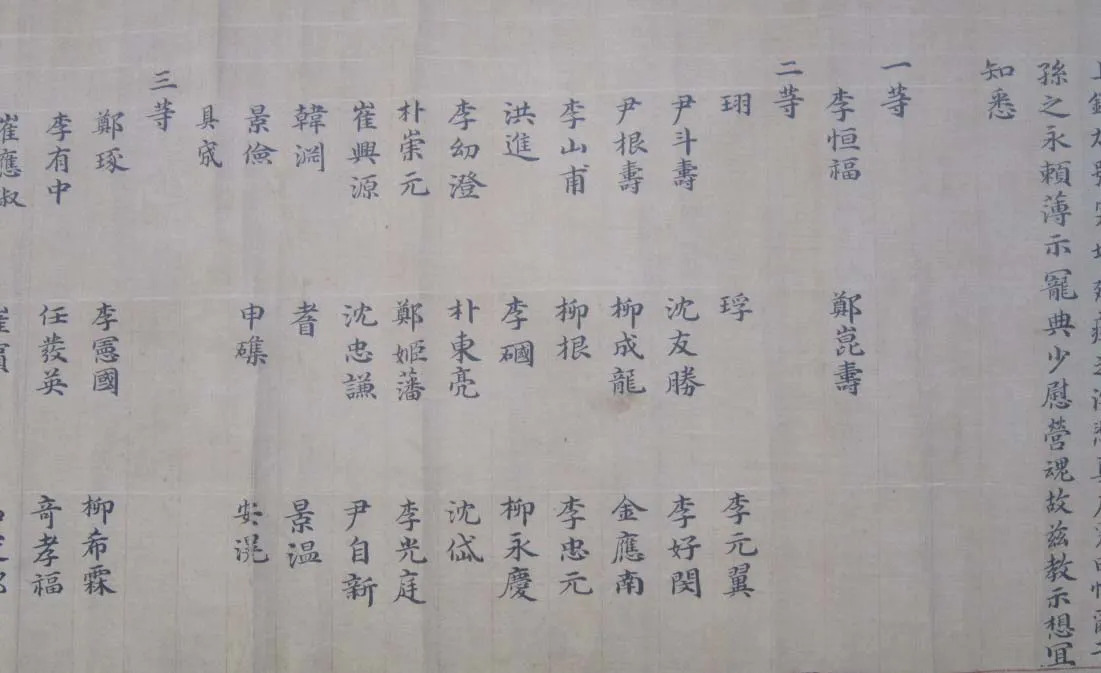 孫之永賴薄示寵典少慰營魂故茲教示想宜
知悉
一等
李恒福 鄭崑壽
二等
珝 琈 李元翼
尹斗壽 沈友勝 李好閔
尹根壽 柳成龍 金應南
李山甫 柳根 李忠元
洪進 李 柳永慶
李幼澄 朴東亮 沈岱
朴崇元 鄭姬藩 李光庭
崔興源 沈忠謙 尹自新
韓淵 耆 景温
景儉 申磼 安滉
具宬
三等
鄭琢 李憲國 柳希霖
李有中 任發英 奇孝福
崔應叔